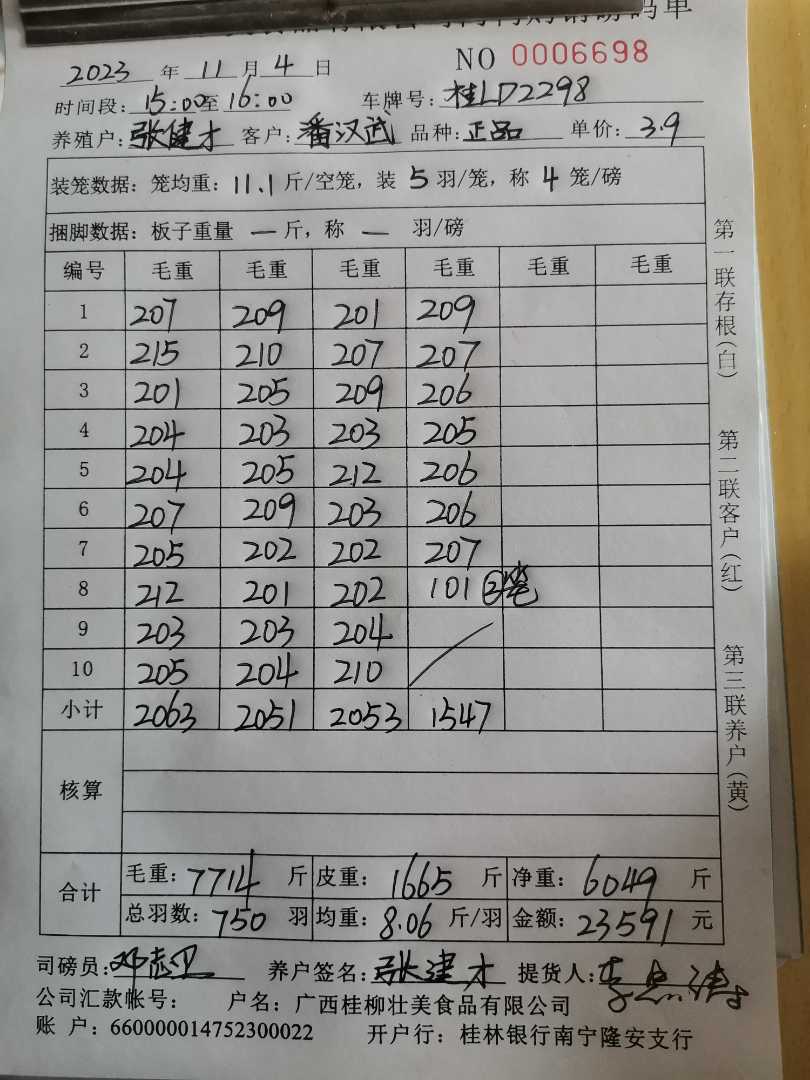 码单
NO 0006698
2023 年 11 月 4 日
时间段: 15:00至 16:00 车牌号: 桂LD2298
养殖户: 张健才 客户: 番汉武 品种: 正品 单价: 3.9
装笼数据: 笼均重: 11.1 斤/空笼, 装 5 羽/笼, 称 4 笼/磅
捆脚数据: 板子重量 — 斤, 称 — 羽/磅
编号 毛重 毛重 毛重 毛重 毛重 毛重
1 207 209 201 209
2 215 210 207 207
3 201 205 209 206
4 204 203 203 205
5 204 205 212 206
6 207 209 203 206
7 205 202 202 207
8 212 201 202 101 ②笼
9 203 203 204
10 205 204 210
小计 2063 2051 2053 1547
核算
合计 毛重: 7714 斤 皮重: 1665 斤 净重: 6049 斤
总羽数: 750 羽 均重: 8.06 斤/羽 金额: 23591 元
司磅员: 邓志卫 养户签名: 张健才 提货人:
公司汇款帐号: 户名: 广西桂柳壮美食品有限公司
账 户: 660000014752300022 开户行: 桂林银行南宁隆安支行
第一联存根(白)
第二联客户(红)
第三联养户(黄)